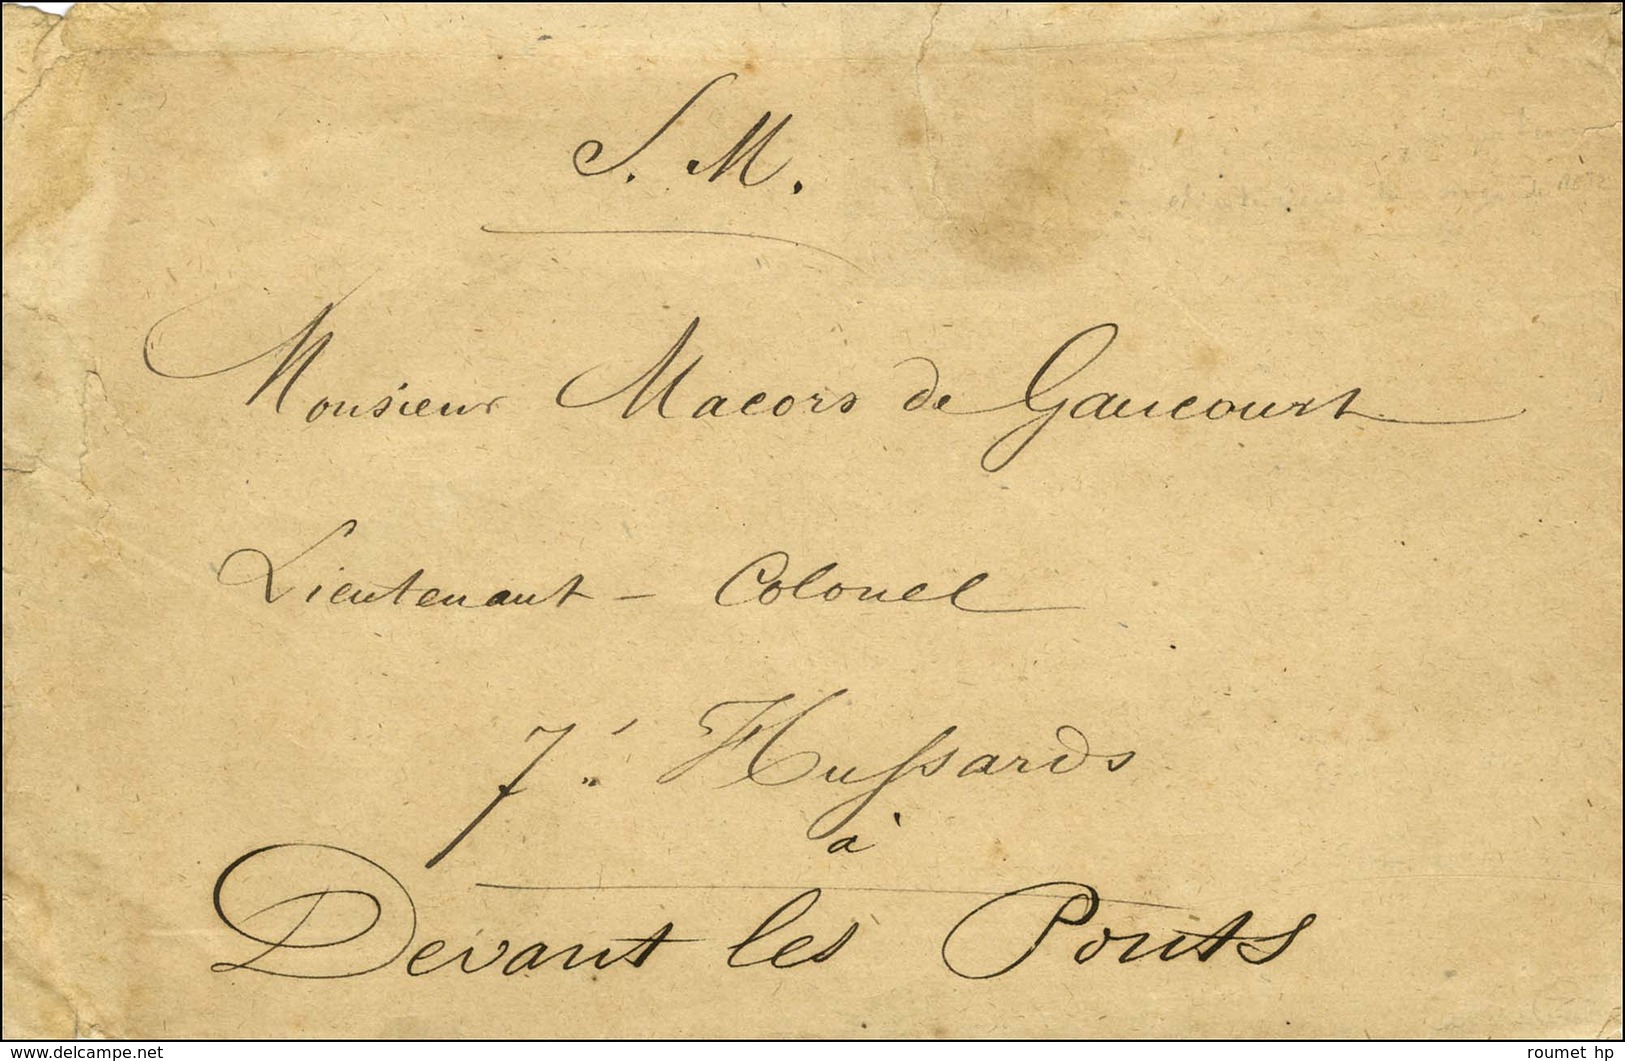 S. M.
Monsieur Macors de Gaucourt
Lieutenant - Colonel
7e Hussards
à
Devant les Ponts
www.delcampe.net
roumet hp